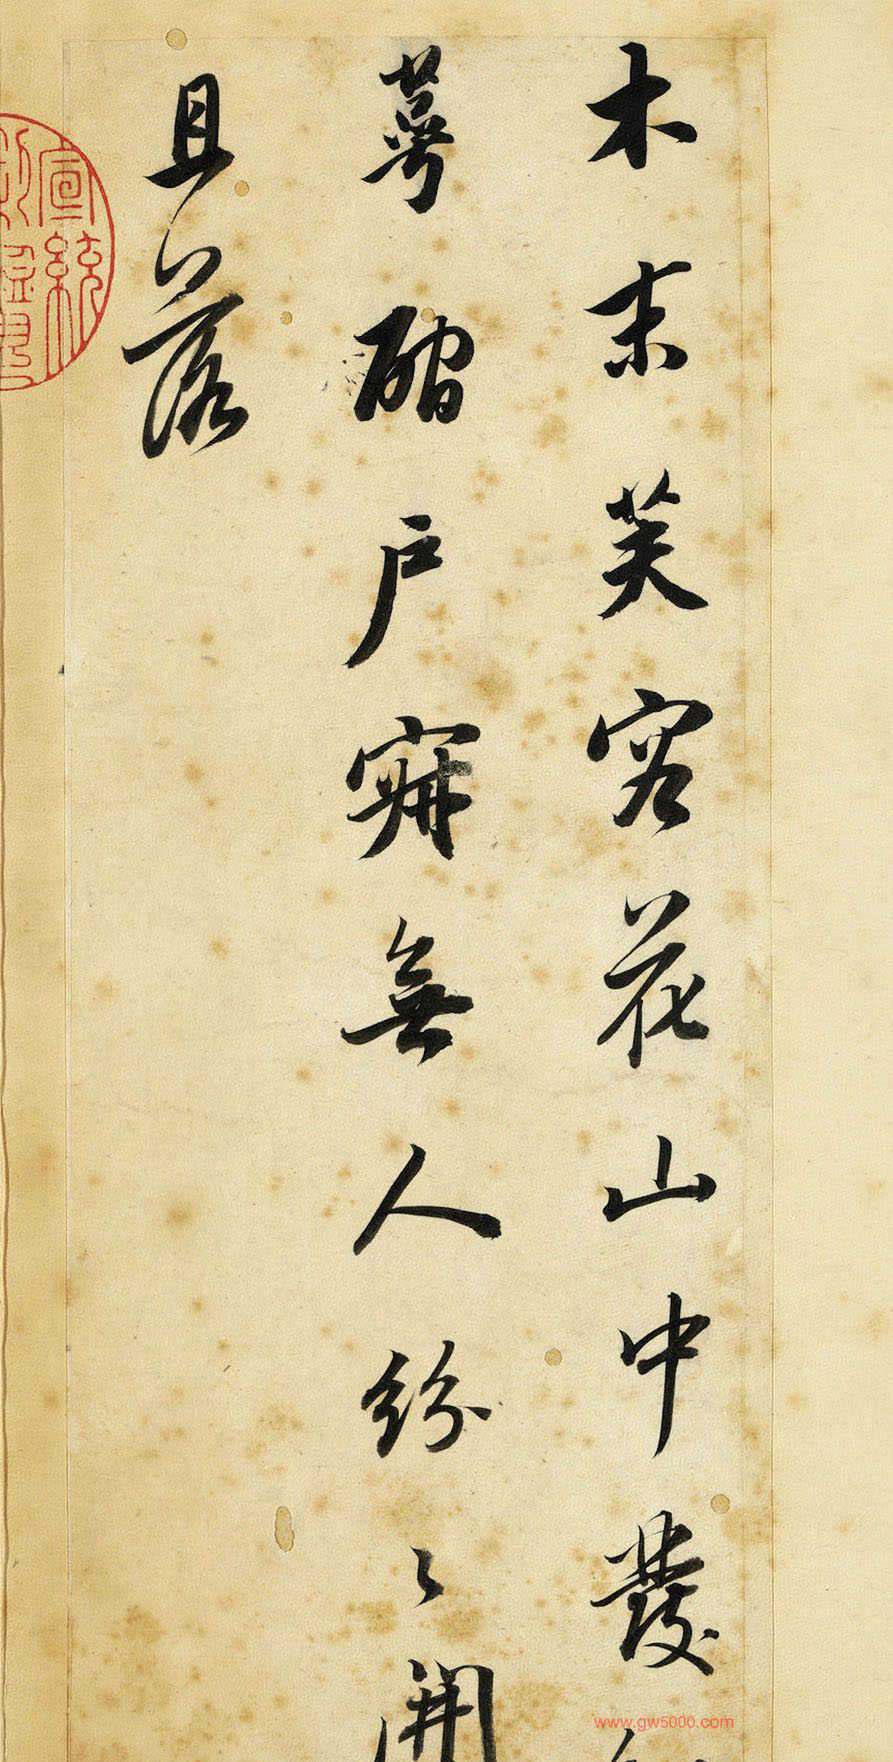 木末芙容花山中發
萼磵戶寂無人紛〻開
且落
宣統
www.gw5000.com